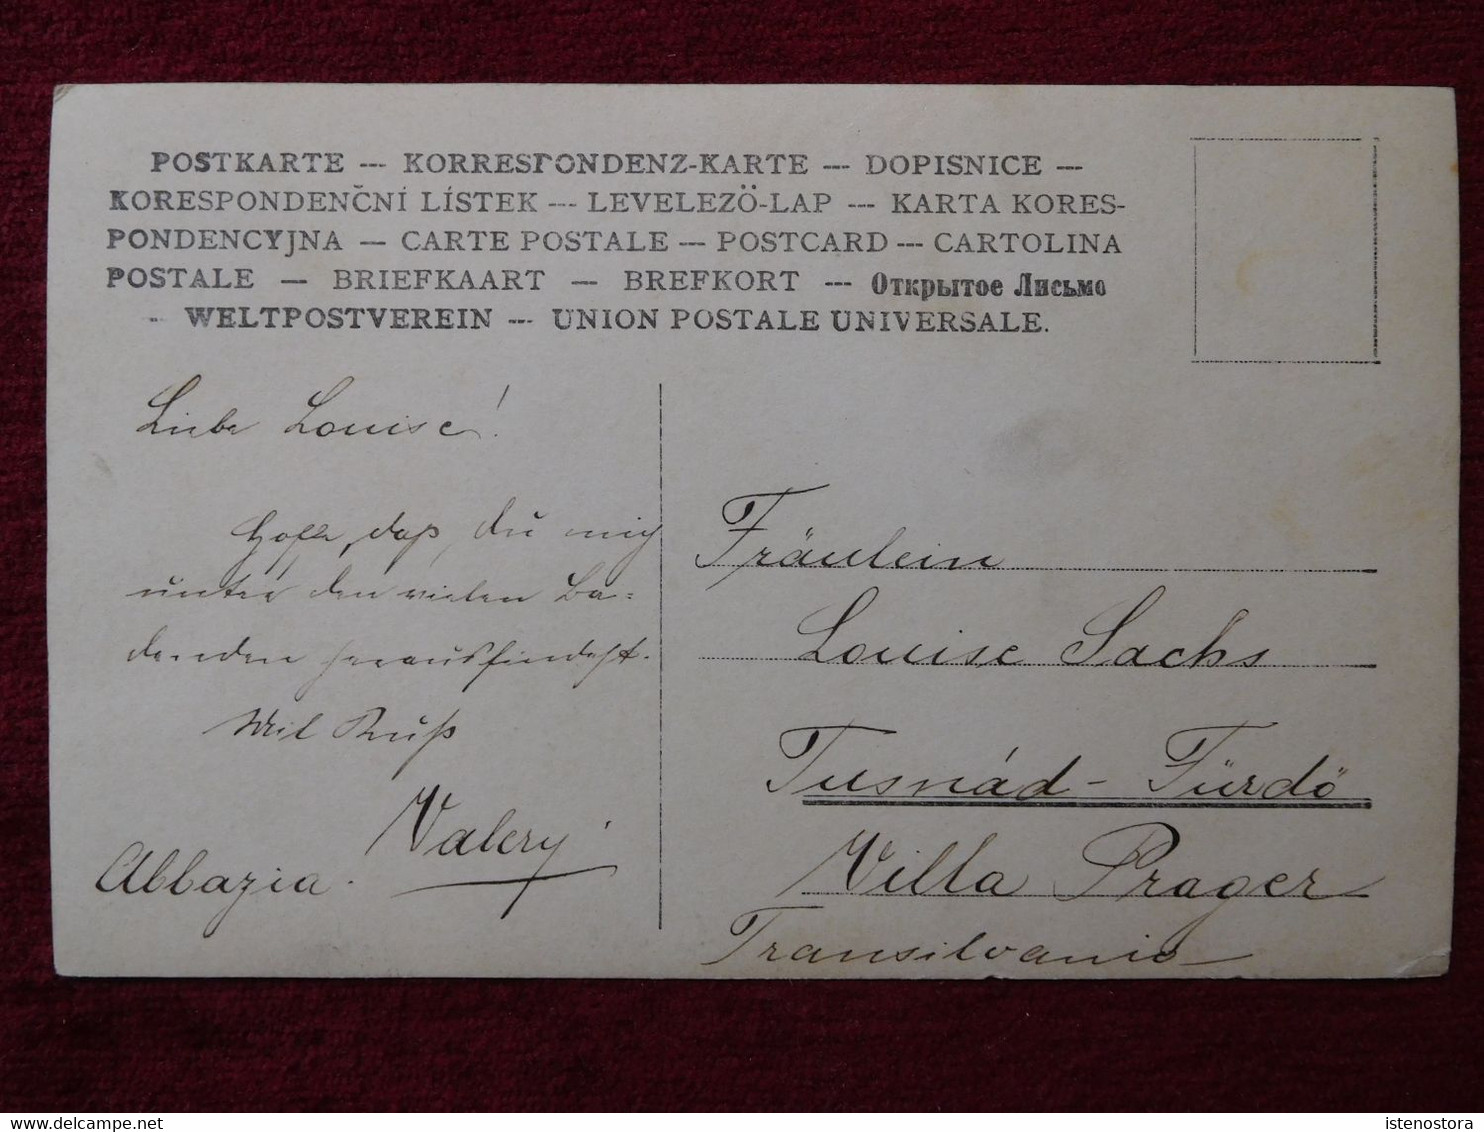 POSTKARTE --- KORRESPONDENZ-KARTE --- DOPISNICE ---
KORESPONDENČNÍ LÍSTEK --- LEVELEZÖ-LAP --- KARTA KORES-
PONDENCYJNA — CARTE POSTALE --- POSTCARD --- CARTOLINA
POSTALE — BRIEFKAART — BREFKORT --- Открытое Письмо
- WELTPOSTVEREIN --- UNION POSTALE UNIVERSALE.
Liebe Louise!
Hoffe, daß du mich
unter den vielen Ba-
denden herausfindest.
Mit Kuß
Valery
Abbazia.
Fräulein
Louise Sachs
Tusnád-Fürdö
Villa Prager
Transilvanie
istenostora